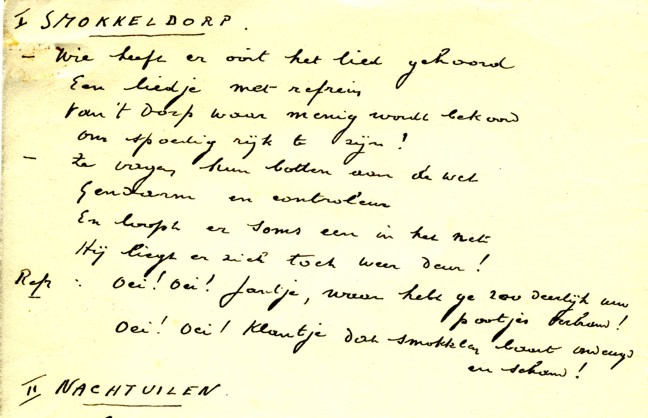 I SMOKKELDORP.
- Wie heeft er ooit het lied gehoord
Een liedje met refrein
Van 't Dorp waar menig wordt bekoord
Om spoedig rijk te zijn!
- Ze vagen hun botten aan de wet
Gendarm en controleur
En loopt er soms een in het net
Hij liegt er zich toch weer deur!
Ref : Oei! Oei! Jantje, waar hebt ge zoo deerlijk uw
pootjes verbrand!
Oei! Oei! Klantje dat smokkelen baart ondeugd
en schand!
II NACHTUILEN.